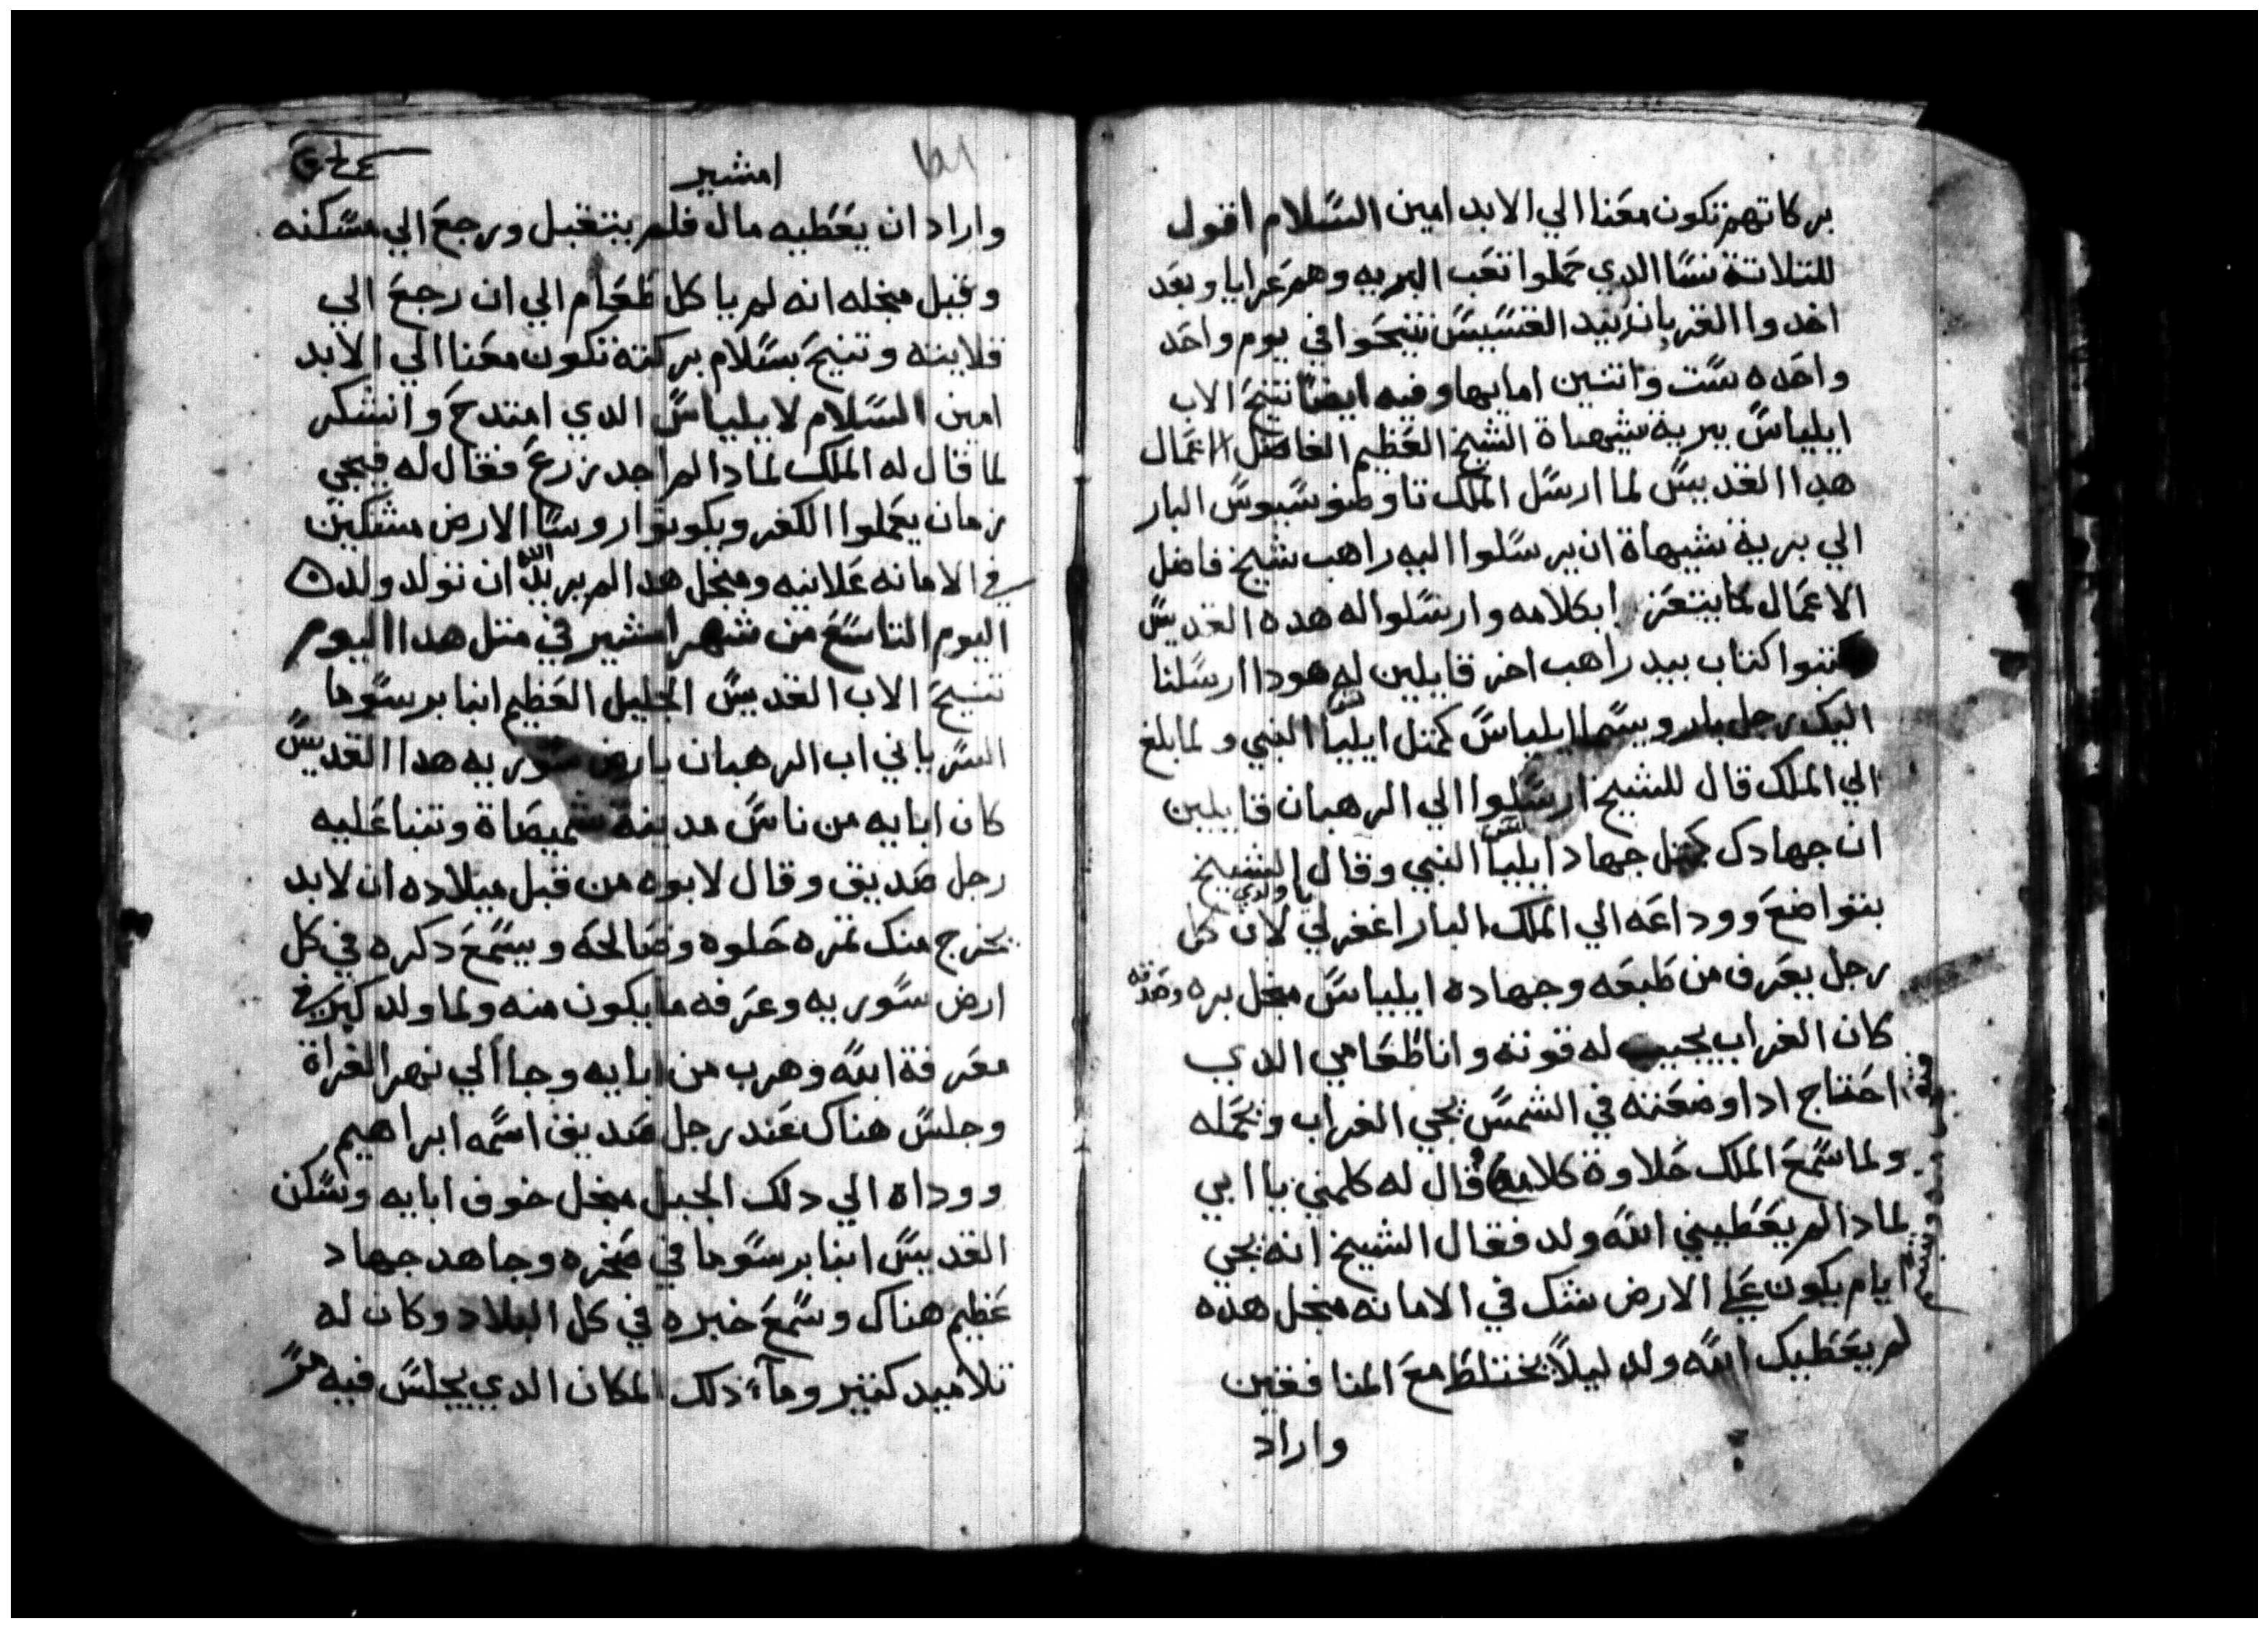 بركاتهم تكون معنا الي الابد امين السلام اقول
للتلاتة نسا الدي حملوا تعب البريه وهم عرايا وبعد
اخدوا القربان بيد القسيس تنيحوا في يوم واحد
واحده ست واتنين امايها وفيه ايضا تنيح الاب
ايلياس ببرية شيهاة الشيخ العظيم الفاضل الاعمال
هدا القديس لما ارسل الملك تاوطوسيوس البار
الي برية شيهاة ان يرسلوا اليه راهب شيخ فاضل
الاعمال لكا يتعزا بكلامه وارسلوا له هده القديس
كتبوا كتاب بيد راهب اخر قايلين له هودا ارسلنا
اليك رجل بار ويسما ايلياس كمتل ايليا النبي ولما بلغ
الي الملك قال للشيخ ارسلوا الي الرهبان قايلين
ان جهادك كمتل جهاد ايليا النبي وقال الشيخ
بتواضع ووداعه الي الملك البار اغفر لي يا ولدي لان كل
رجل يعرف من طبعه وجهاده ايلياس منجل بره وصدقه
كان الغراب يجيب له قوته وانا طعامي الدي
احتاج ادا وضعته في الشمس يجي الغراب ويحمله
ولما سمع الملك حلاوة كلامه قال له كلمني يا ابي
لمادا لم يعطيني الله ولد فقال الشيخ انه يجي
ايام يكون علي الارض شك في الامانه منجل هده
لم يعطيك الله ولد ليلا يختلط مع المنافقين
واراد
امشير
واراد ان يعطيه مال فلم يتقبل ورجع الي مسكنه
وقيل منجله انه لم ياكل طعام الي ان رجع الي
قلايته وتنيح بسلام بركته تكون معنا الي الابد
امين السلام لايلياس الدي امتدح وانشكر
لما قال له الملك لمادا لم اجد زرع فقال له فيجي
زمان يعملوا الكفر ويكونوا روسا الارض مشكين
في الامانه علانيه ومنجل هدا لم يريد الله ان تولد ولد
اليوم التاسع من شهر امشير في متل هدا اليوم
تنيح الاب القديس الجليل العظيم انبا برسوما
السرياني اب الرهبان بارض سوريه هدا القديس
كان ابايه من ناس مدينة شميصاة وتنبا عليه
رجل صديق وقال لابوه من قبل ميلاده ان لابد
يخرج منك تمره حلوه وصالحه ويسمع دكره في كل
ارض سوريه وعرفه ما يكون منه ولما ولد كبر في
معرفة الله وهرب من ابايه وجا الي نهر الفراة
وجلس هناك عند رجل صديق اسمه ابراهيم
ووداه الي دلك الجبل منجل خوف ابايه وسكن
القديس انبا برسوما في صخره وجاهد جهاد
عظيم هناك وسمع خبره في كل البلاد وكان له
تلاميد كتير ومآء ذلك المكان الدي يجلس فيه مر